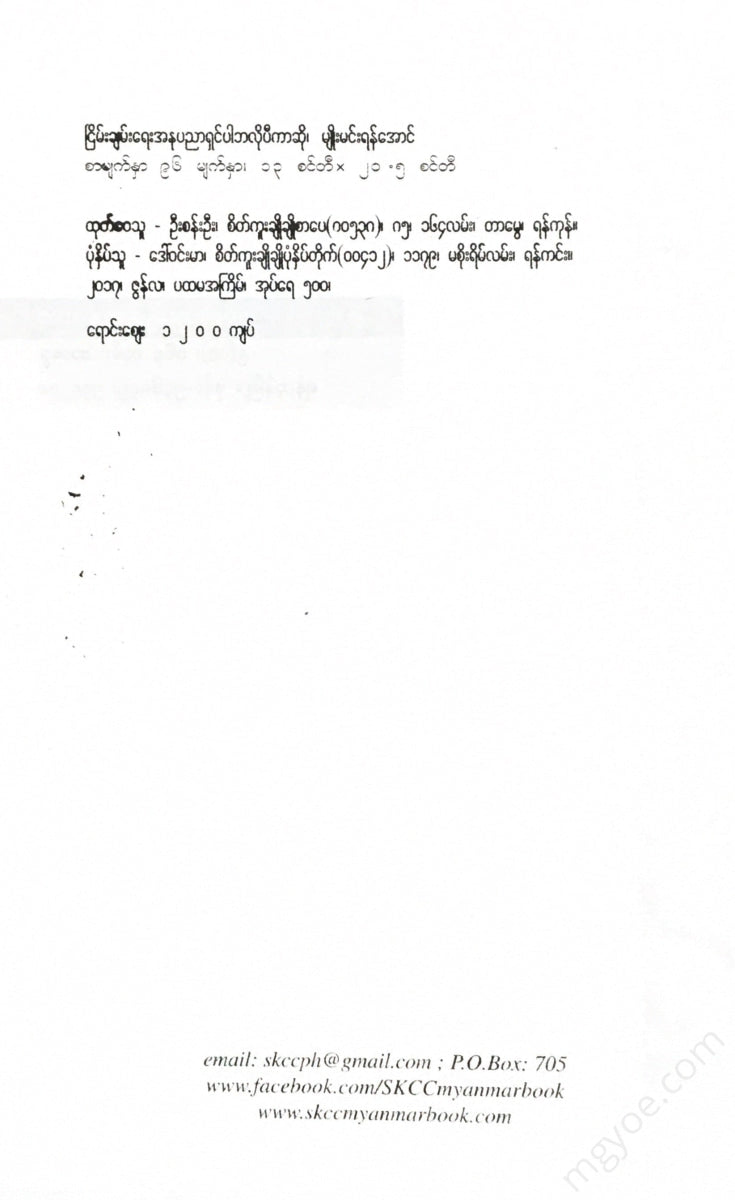 ငြိမ်းချမ်းရေးအနုပညာရှင်ပါဘလိုပီကာဆို၊ မျိုးမင်းရန်အောင်
စာမျက်နှာ ၉၆ မျက်နှာ၊ ၁၃ စင်တီ× ၂၁.၅ စင်တီ
ထုတ်ဝေသူ - ဦးစန်းဦး၊ စိတ်ကူးချိုချိုစာပေ(၈၀၅၃၈)၊ ၈၅၊ ၁၆၄လမ်း၊ တာမွေ၊ ရန်ကုန်။
ပုံနှိပ်သူ - ဒေါ်ဝင်းမာ၊ စိတ်ကူးချိုချိုပုံနှိပ်တိုက်(၀၀၄၁၂)၊ ၁၁၇၉၊ မစိုးရိမ်လမ်း၊ ရန်ကင်း။
၂၀၁၇၊ ဇွန်လ၊ ပထမအကြိမ်၊ အုပ်ရေ ၅၀၀၊
ရောင်းဈေး ၁၂၀၀ ကျပ်
email: skccph@gmail.com ; P.O.Box: 705
www.facebook.com/SKCCmyanmarbook
www.skccmyanmarbook.com
mgyoe.com